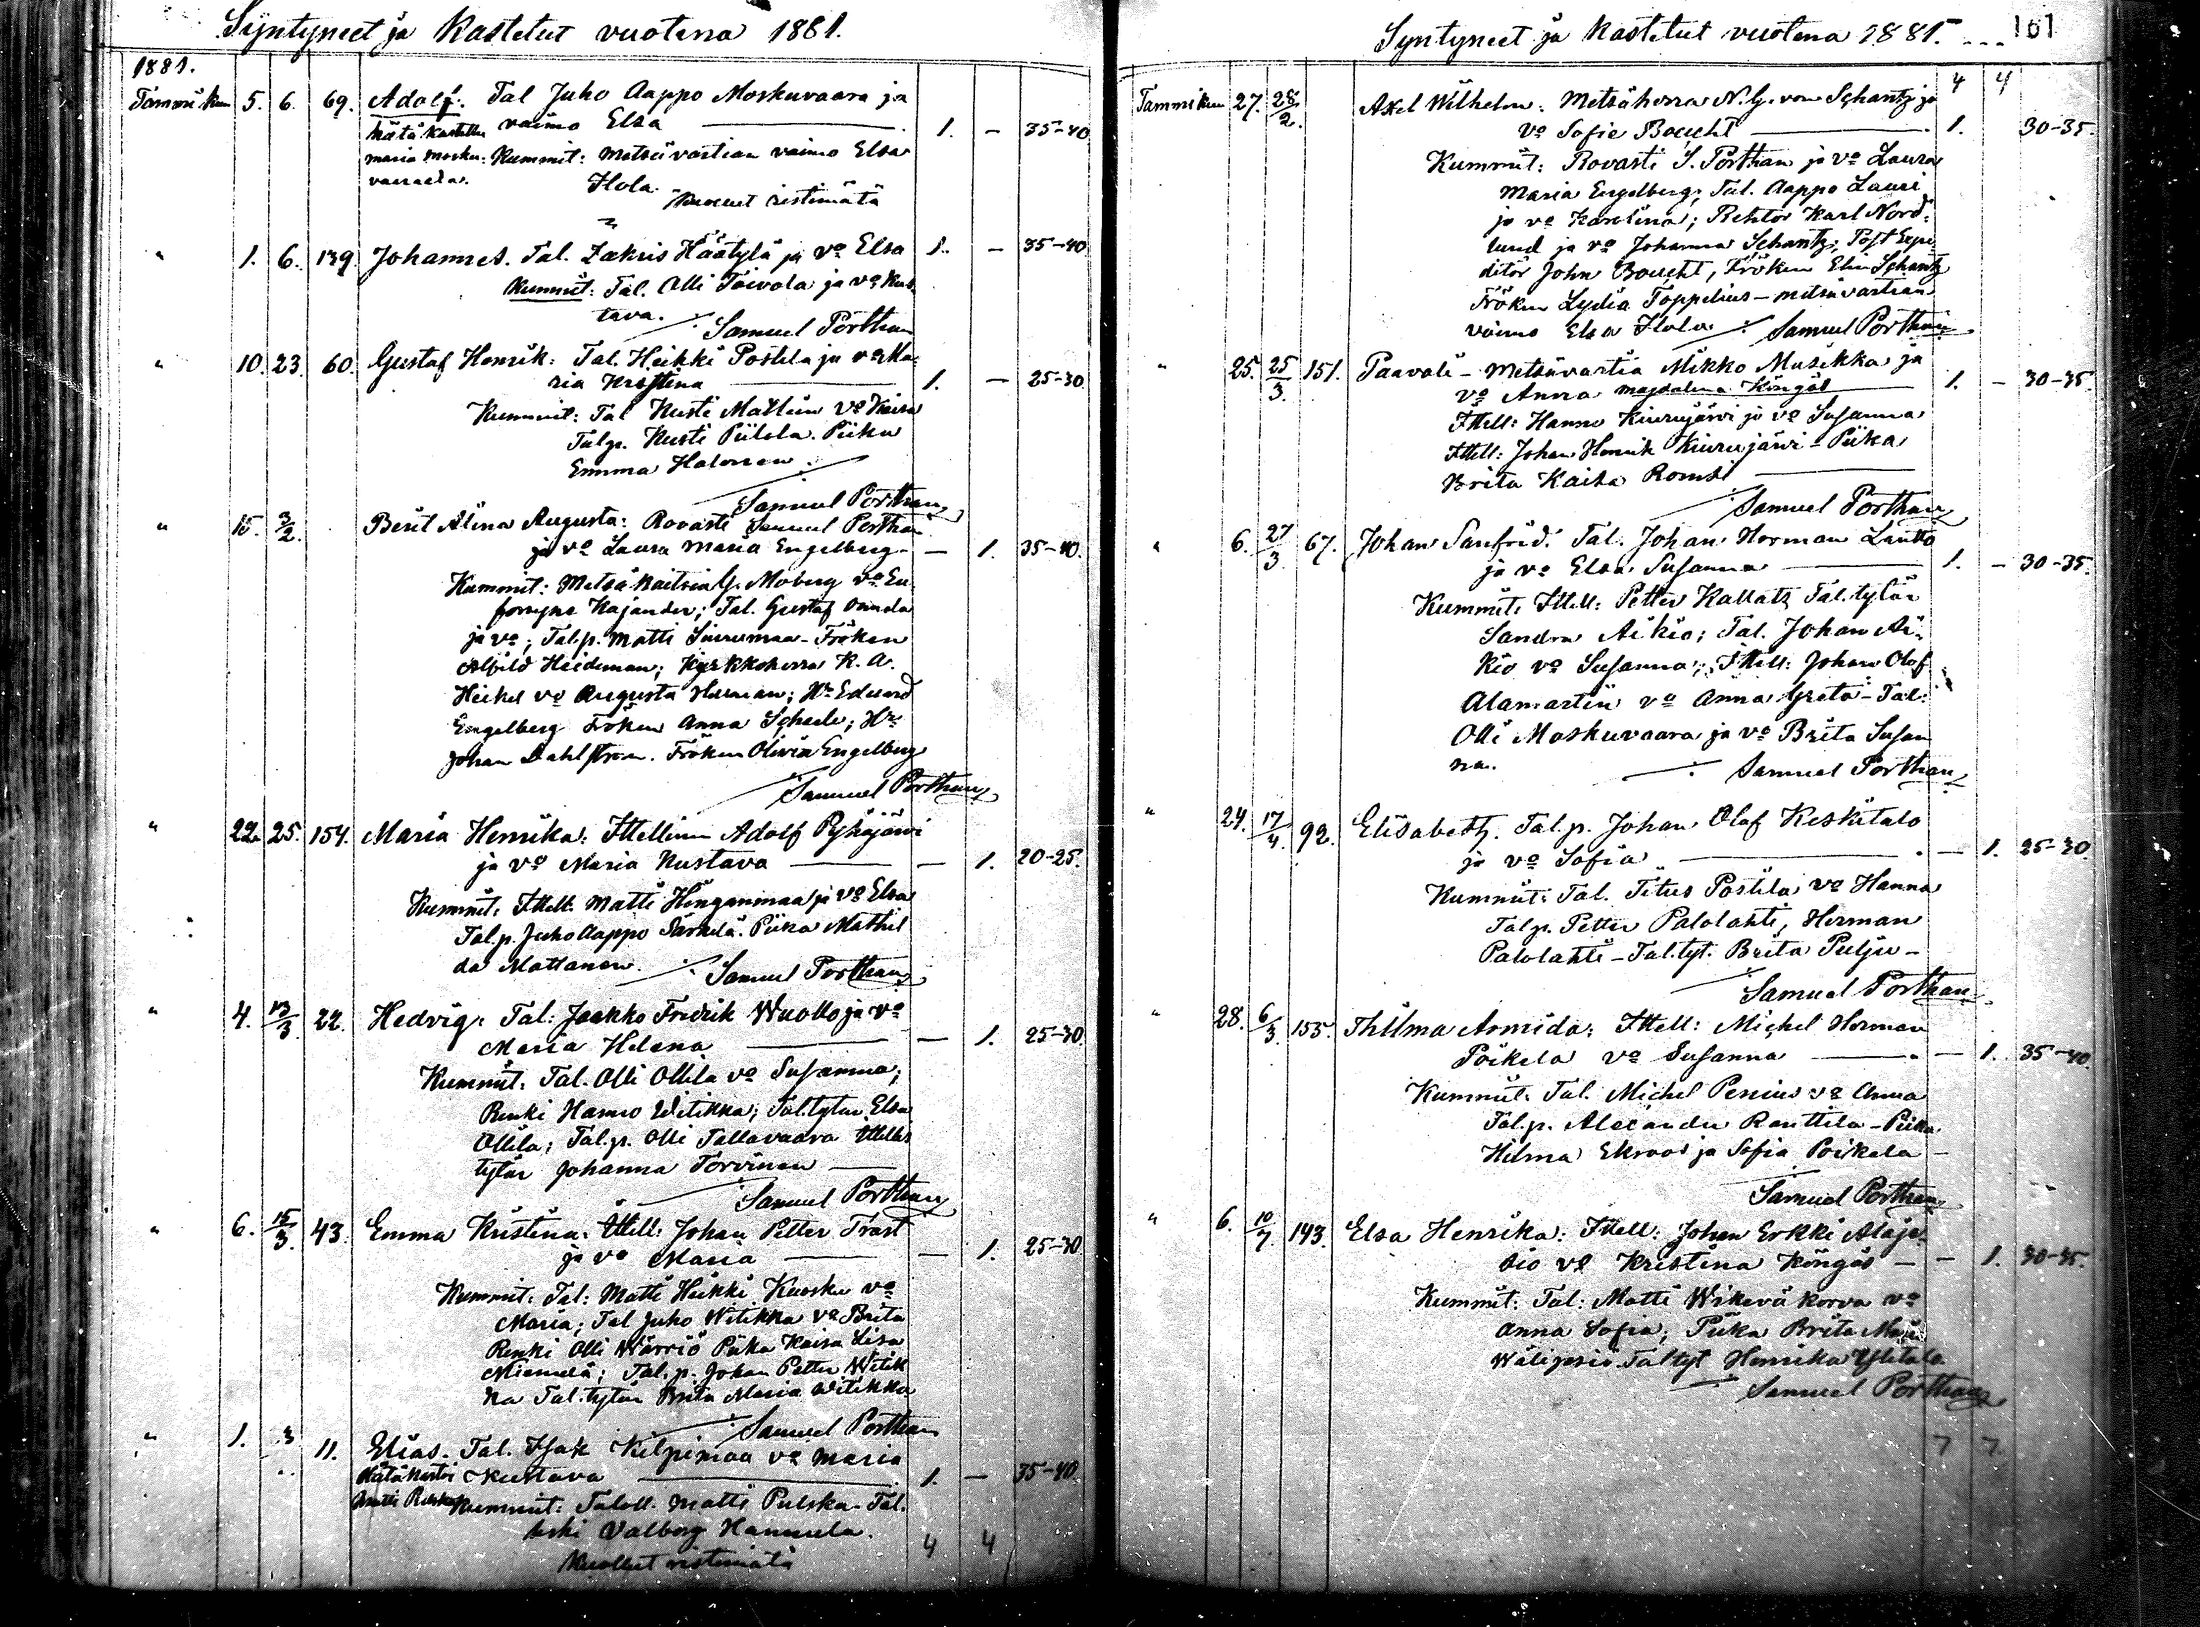 Syntyneet ja Kastetut vuotena 1881.
1881.
Tammikuu 5. 6. 69. Adolf. Tal Juho Aappo Moskuvaara ja
Hätäkastettu vaimo Elsa 1. — 35-40
Maria Mosku- Kummit: Metsävartian vaimo Elsa
vaaralta. Hola.
Kuollut ristimätä
" 1. 6. 139. Johannes. Tal. Zakris Häätylä ja vo Elsa 1. — 35-40
Kummit: Tal. Olli Toivola ja vo Kus-
tava. Samuel Porthan
" 10. 23. 60. Gustaf Henrik: Tal. Heikki Postila ja vo Ma-
ria Kristina 1. — 25-30
Kummit: Tal Kusti Mattein vo Kaisa
Talp. Kusti Piilola. Piika
Emma Halonen
Samuel Porthan
" 15. 3/2. Berit Alina Augusta: Rovasti Samuel Porthan
ja vo Laura Maria Engelberg — 1. 35-40.
Kummit: Metsäkaitsia G. Moberg vo Eu-
fosyne Kajander; Tal. Gustaf Ounda
ja vo; Tal.p. Matti Siurumaa - Fröken
Alfild Heideman; Kirkkoherra K. A.
Heikel vo Augusta Herman; Hr Edvard
Engelberg Fröken Anna Scheele; Hr
Johan Dahlström. Fröken Olivia Engelberg
Samuel Porthan
" 22. 25. 154. Maria Henrika. Ittellinen Adolf Pyhäjärvi
ja vo Maria Kustava — 1. 20-25.
Kummit: Ittell. Matti Hinganmaa ja vo Elsa
Tal.p. Juho Aappo Särkelä. Piika Mathil
da Mattanen. Samuel Porthan
" 4. 13/3. 22. Hedvig. Tal: Jaakko Fredrik Wuollo ja vo
Maria Helena — 1. 25-30
Kummit: Tal. Olli Ollila vo Susanna;
Renki Hannu Witikka; Tal.tytär Elsa
Ollila; Tal.p. Olli Tallavaara Ittellis
tytär Johanna Torvinen
Samuel Porthan
" 6. 15/3. 43. Emma Kristina. Ittell: Johan Petter Trast
ja vo Maria — 1. 25-30
Kummit: Tal: Matti Heikki Kuosku vo
Maria; Tal Juho Witikka vo Brita
Renki Olli Wärriö Piika Kaisa Lisa
Niemelä; Tal.p. Johan Petter Witik
ka Tal.tytär Brita Maria Witikka
Samuel Porthan
" 1. 3 11. Elias. Tal. Isak Kilpimaa vo Maria
Hätäkastoi Kustava 1. — 35-40
Matti Pulska Kummit: Taloll. Matti Pulska. Tal.
leski Valborg Hannula.
Kuollut ristimätä 4 4
Syntyneet ja Kastetut vuotena 1881. 161
4 4
Tammikuu 27. 28/2. Axel Wilhelm: Metsäherra N. G. von Schantz ja
vo Sofie Boucht 1. 30-35.
Kummit: Rovasti S. Porthan ja vo Laura
Maria Engelberg; Tal. Aappo Lauri
ja vo Karolina; Rehtor Karl Nord-
lund ja vo Johanna Schantz; Post Expe-
ditör John Boucht, Fröken Elin Schantz
Fröken Lydia Toppelius - metsävartian
vaimo Elsa Hola. Samuel Porthan
" 25. 25/3. 151. Paavali - Metsävartia Mikko Musikka ja
vo Anna Magdalena Köngäs 1. — 30-35.
Ittell: Hannu Kiurujärvi ja vo Susanna
Ittell: Johan Henrik Kiurujärvi - Piika
Brita Kaisa Romsi
Samuel Porthan
" 6. 27/3 67. Johan Sanfrid. Tal. Johan Herman Lautto
ja vo Elsa Susanna 1. — 30-35.
Kummit: Ittell: Petter Kallatz Tal.tytär
Sandra Aikio; Tal. Johan Ai-
kio vo Susanna; Ittell: Johan Olof
Alamartin vo Anna Greta - Tal.
Olli Moskuvaara ja vo Brita Susan
na. Samuel Porthan
" 24. 17/4. 92. Elisabeth. Tal.p. Johan Olof Keskitalo
ja vo Sofia — 1. 25-30.
Kummit: Tal. Titus Postila vo Hanna
Talp. Petter Palolahti, Herman
Palolahti - Tal.tyt. Brita Pulju -
Samuel Porthan
" 28. 6/3. 155. Thilma Armida: Ittell: Michel Herman
Poikela vo Susanna — 1. 35-40.
Kummit: Tal. Michel Penius vo Anna
Tal.p. Alexander Ranttila - Piika
Hilma Ekroos ja Sofia Poikela -
Samuel Porthan
" 6. 10/7. 143. Elsa Henrika: Ittell: Johan Erkki Alaje-
sio vo Kristina Köngäs — 1. 30-35.
Kummit: Tal: Matti Wikeväkorva vo
Anna Sofia; Piika Brita Maria
Wälijesio Taltyt Henrika Ylitalo
Samuel Porthan
7 7.